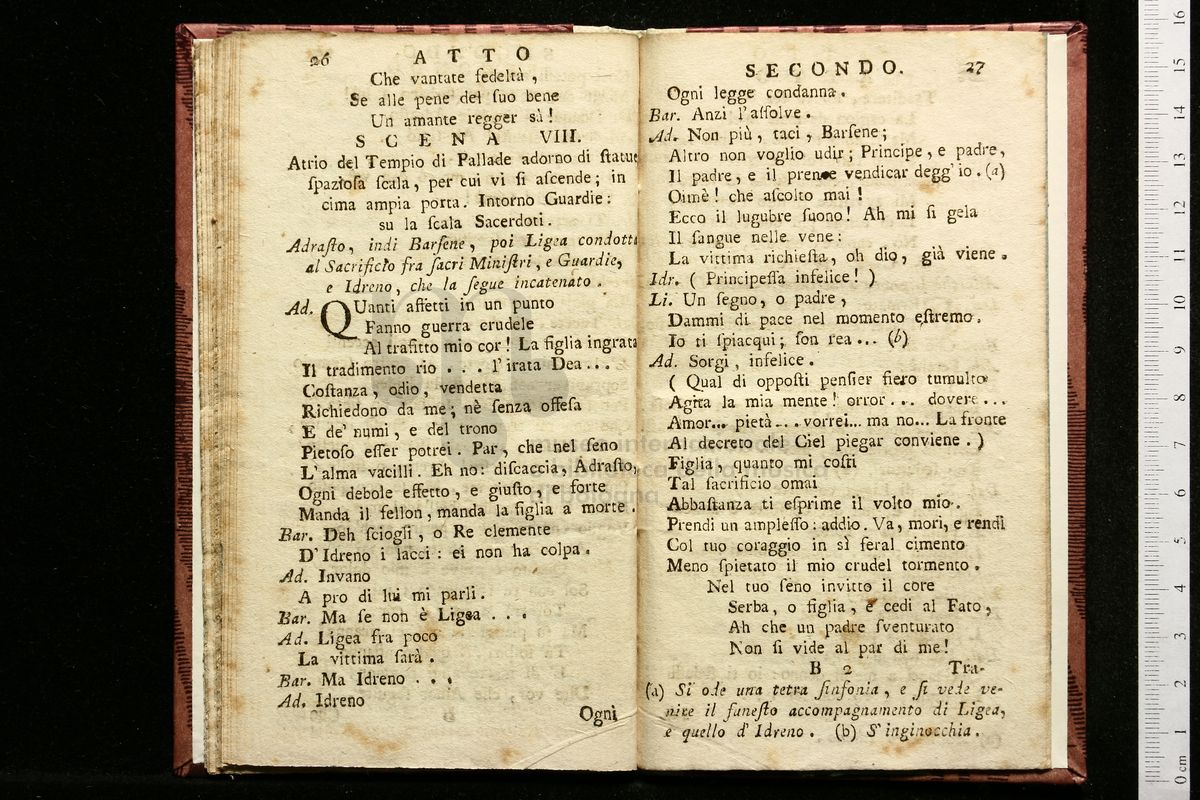 26 ATTO
Che vantate fedeltà,
Se alle pene del ſuo bene
Un amante regger sà!
SCENA VIII.
Atrio del Tempio di Pallade adorno di ſtatue
ſpazioſa ſcala, per cui vi ſi aſcende; in
cima ampia porta. Intorno Guardie:
su la ſcala Sacerdoti.
Adraſto, indi Barſene, poi Ligea condotta
al Sacrificio fra ſacri Miniſtri, e Guardie,
e Idreno, che la ſegue incatenato.
Ad. QUanti affetti in un punto
Fanno guerra crudele
Al trafitto mio cor! La figlia ingrata
Il tradimento rio . . . l'irata Dea...
Coſtanza, odio, vendetta
Richiedono da me; nè ſenza offeſa
E de' numi, e del trono
Pietoſo eſſer potrei. Par, che nel ſeno
L'alma vacilli. Eh no: diſcaccia, Adraſto,
Ogni debole effetto, e giuſto, e forte
Manda il fellon, manda la figlia a morte.
Bar. Deh ſciogli, o Re clemente
D'Idreno i lacci: ei non ha colpa.
Ad. Invano
A pro di lui mi parli.
Bar. Ma ſe non è Ligea . . .
Ad. Ligea fra poco
La vittima ſarà.
Bar. Ma Idreno . . .
Ad. Idreno
Ogni
SECONDO. 27
Ogni legge condanna.
Bar. Anzi l'aſſolve.
Ad. Non più, taci, Barſene;
Altro non voglio udir; Principe, e padre,
Il padre, e il prence vendicar degg'io. (a)
Oimè! che aſcolto mai!
Ecco il lugubre ſuono! Ah mi ſi gela
Il ſangue nelle vene:
La vittima richieſta, oh dio, già viene.
Idr. ( Principeſſa infelice! )
Li. Un ſegno, o padre,
Dammi di pace nel momento eſtremo.
Io ti ſpiacqui; ſon rea... (b)
Ad. Sorgi, infelice.
( Qual di oppoſti penſier fiero tumulto
Agita la mia mente! orror... dovere...
Amor... pietà... vorrei... ma no... La fronte
Al decreto del Ciel piegar conviene. )
Figlia, quanto mi coſti
Tal ſacrificio omai
Abbaſtanza ti eſprime il volto mio.
Prendi un ampleſſo: addio. Va, mori, e rendi
Col tuo coraggio in sì feral cimento
Meno ſpietato il mio crudel tormento.
Nel tuo ſeno invitto il core
Serba, o figlia, e cedi al Fato,
Ah che un padre ſventurato
Non ſi vide al par di me!
B 2 Tra-
(a) Si ode una tetra ſinfonia, e ſi vede ve-
nire il funeſto accompagnamento di Ligea,
e quello d'Idreno. (b) S'inginocchia.
16
15
14
13
12
11
10
9
8
7
6
5
4
3
2
1
0 cm